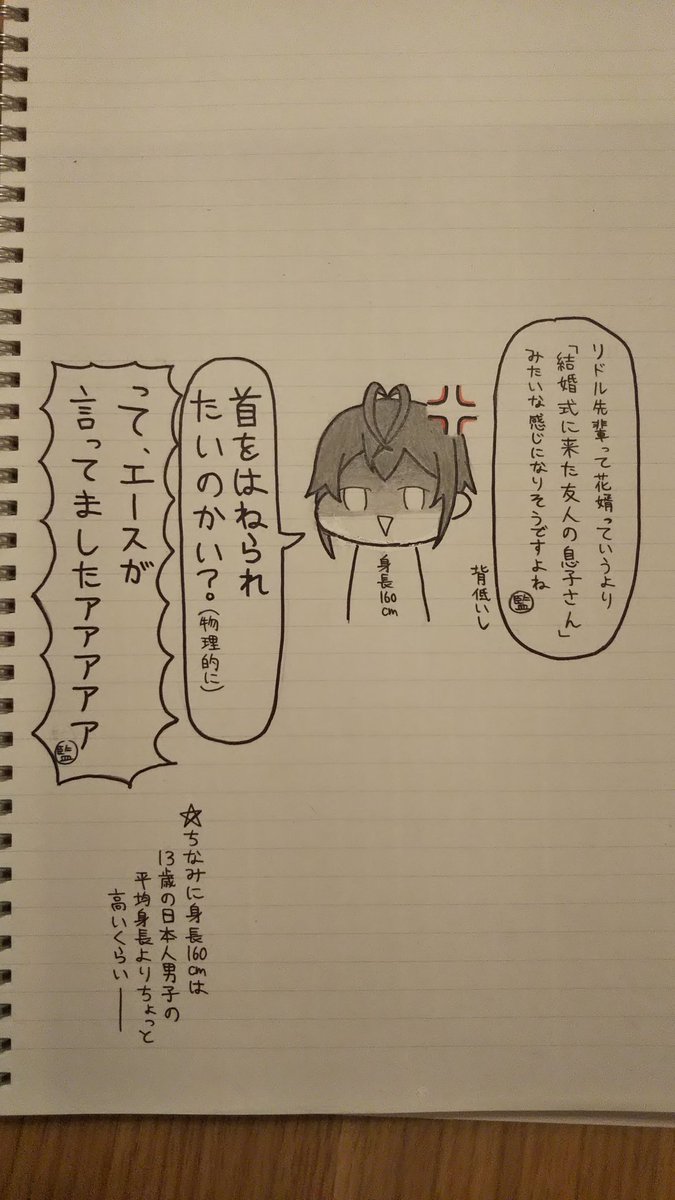 リドル先輩って花婿っていうより
「結婚式に来た友人の息子さん」
みたいな感じになりそうですよね
監
背低いし
身長160cm
首をはねられ
たいのかい?。(物理的に)
って、エースが
言ってましたァァァァァ
監
☆ちなみに身長160cmは
13歳の日本人男子の
平均身長よりちょっと
高いくらい――